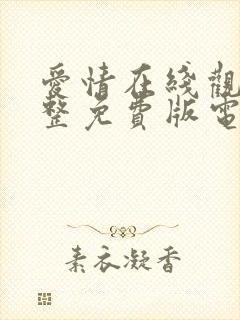 愛情在綫觀
整免費版電
素衣凝香